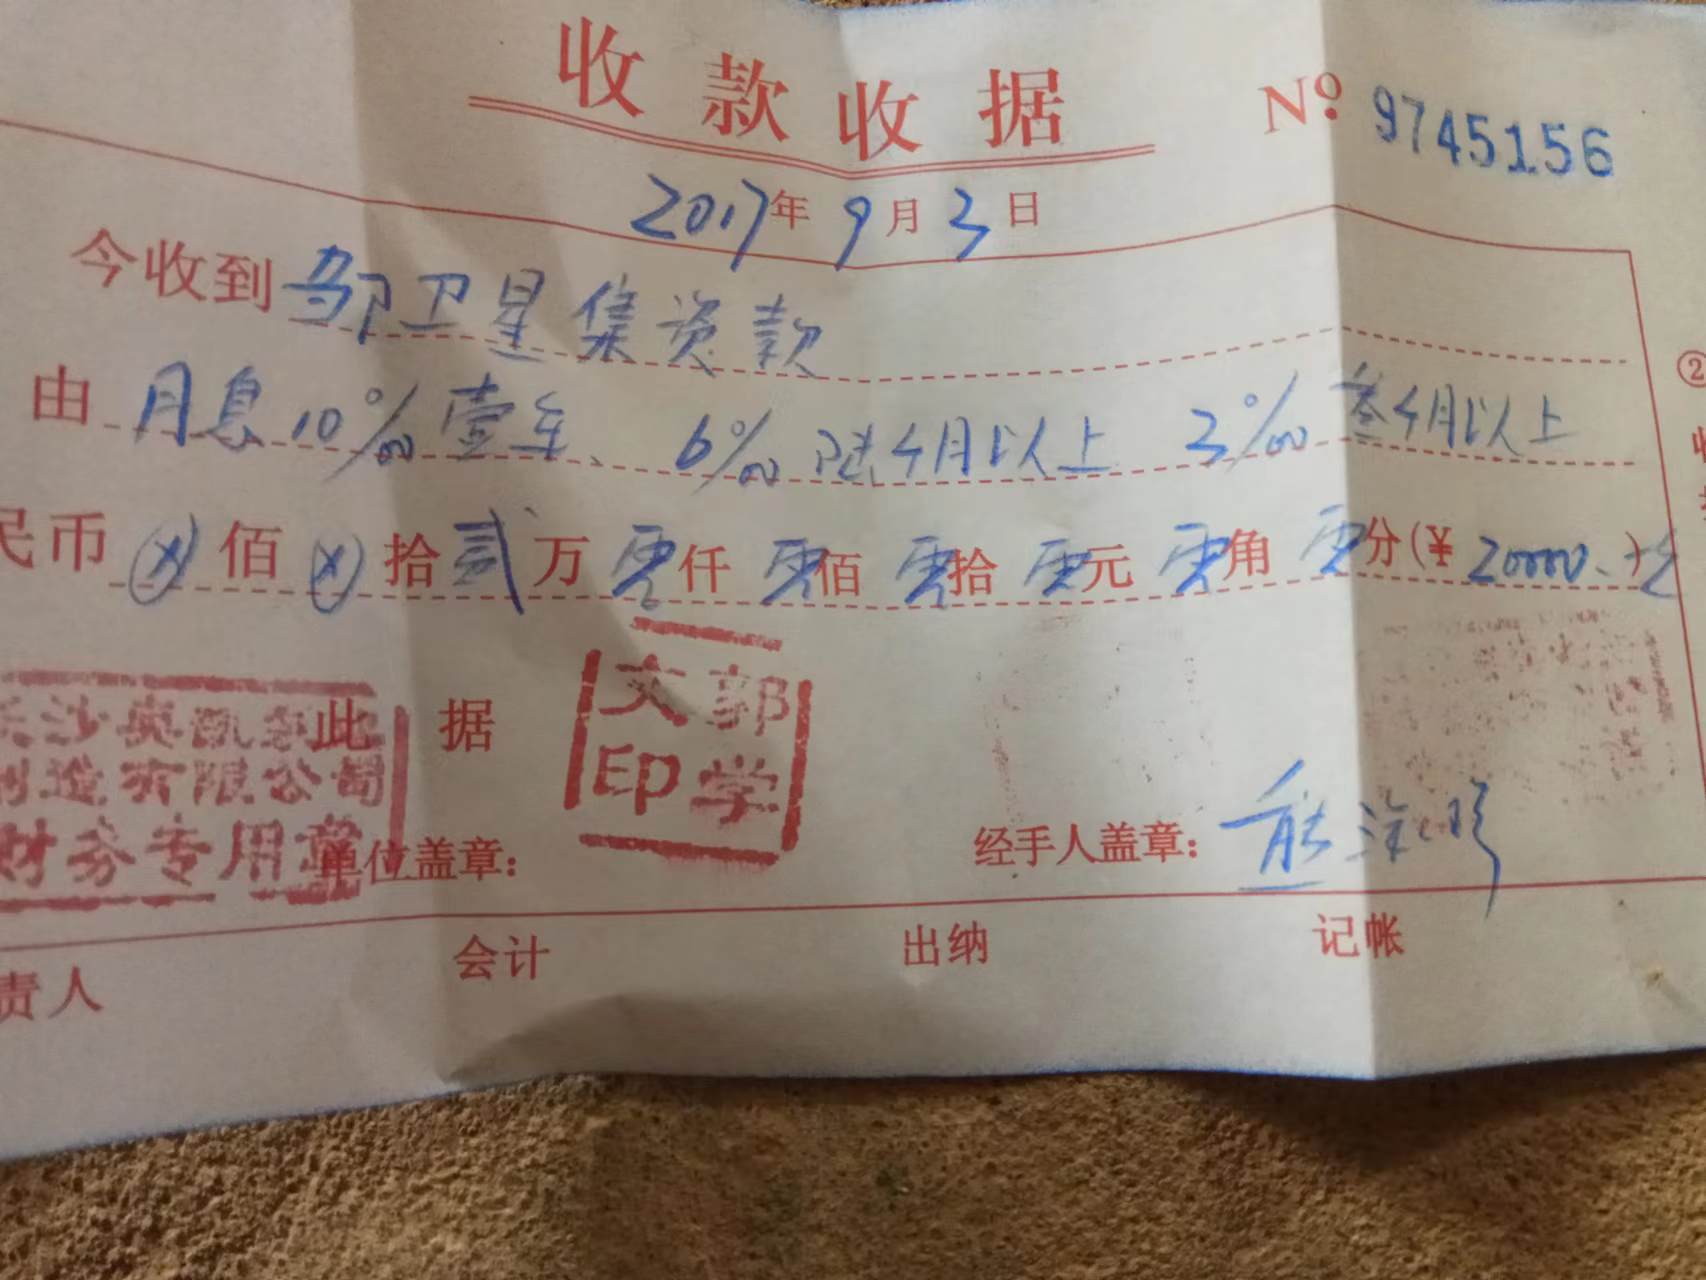 收款收据
No 9745156
2017年9月3日
今收到邹卫星集资款
由月息10‰壹年、6‰陆个月以上 3‰叁个月以上
民币ⓧ佰ⓧ拾贰万零仟零佰零拾零元零角零分(¥20000.)元
此据
长沙奥凯
制造有限公司
财务专用章
郭学文印
单位盖章:
经手人盖章: 熊
责人 会计 出纳 记账
②
收